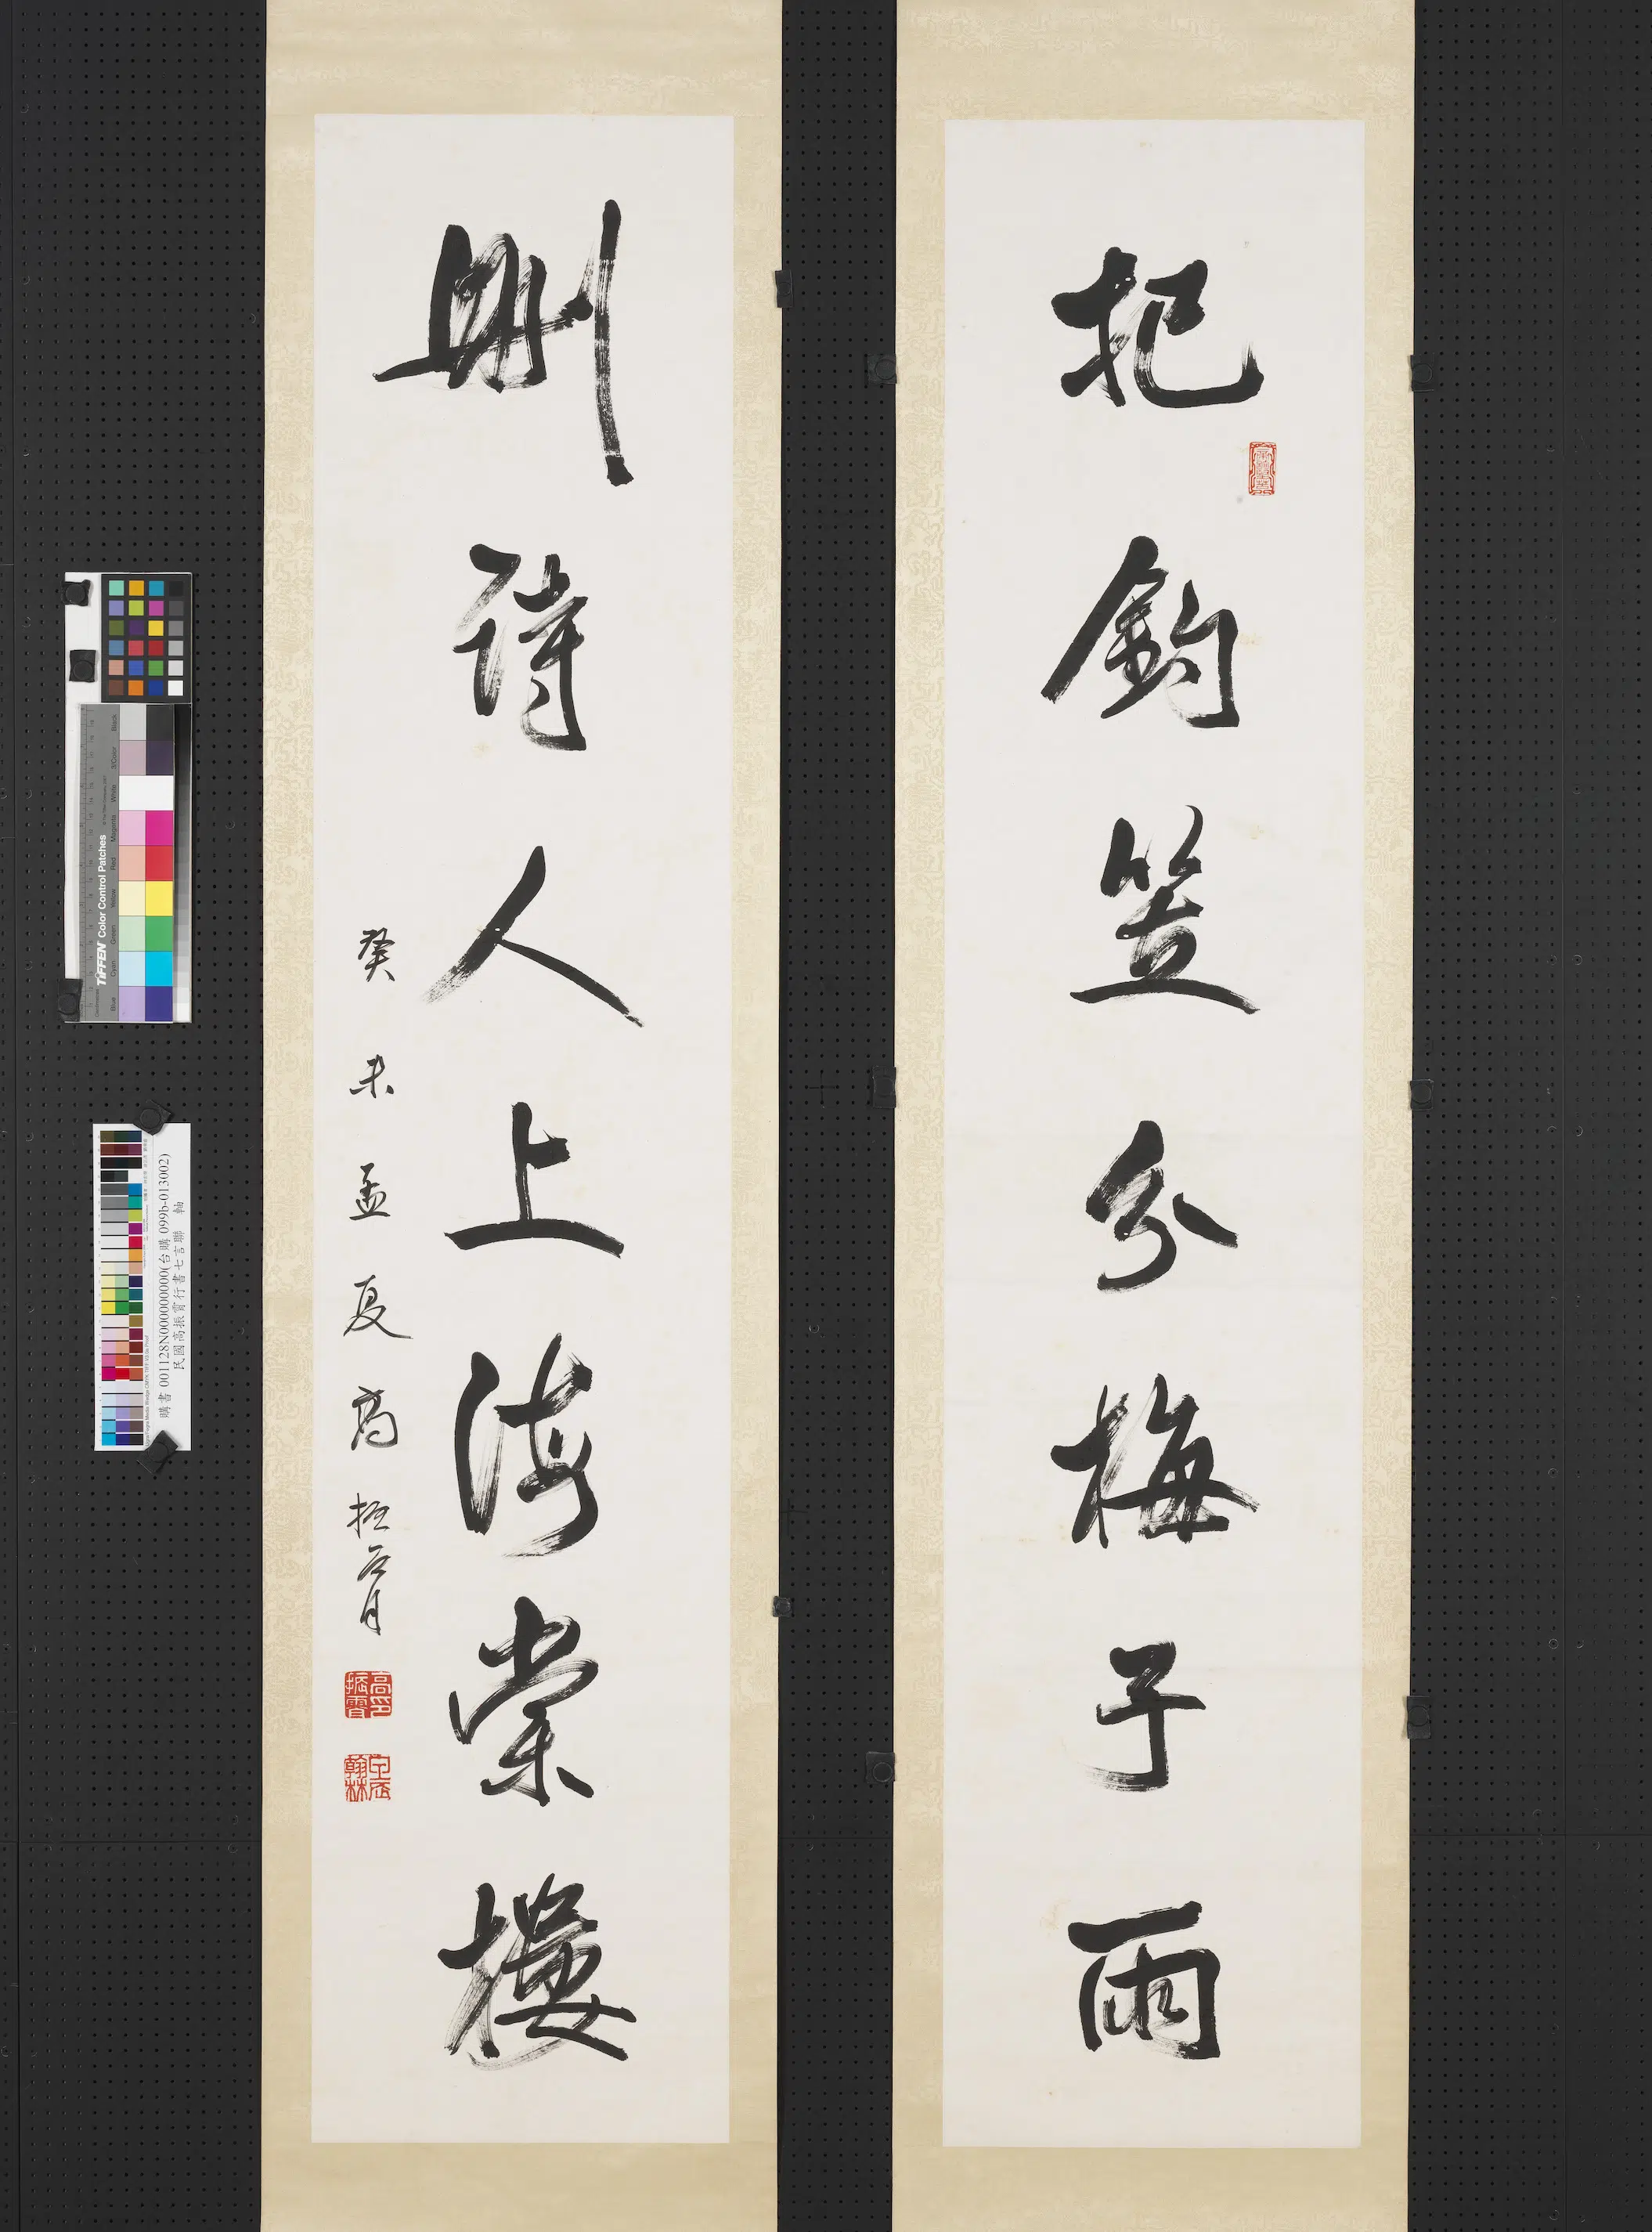 把釣笠分梅子雨
刪詩人上海棠樓
癸未孟夏高振霄
高振霄印
甲辰翰林
購書 001128N000000000(台購 099b-013002)
民國高振霄行書七言聯 軸
TIFFEN Color Control Patches
Blue Cyan Green Yellow Red Magenta White 3/Color Black